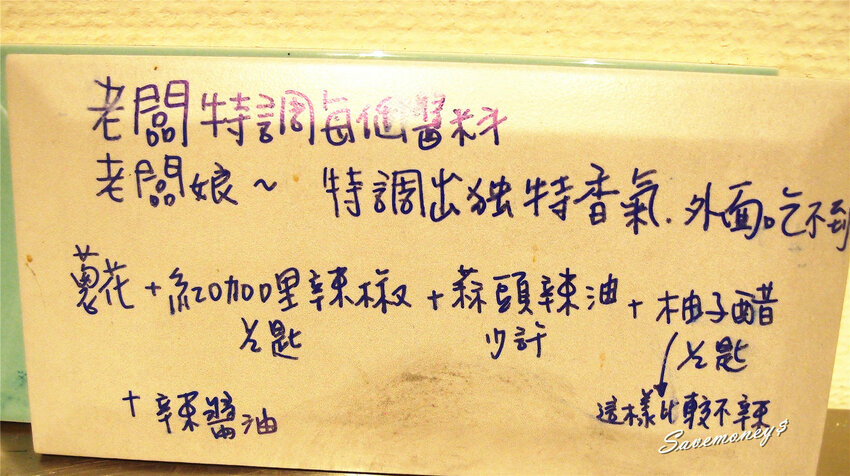 老闆特調每個醬料
老闆娘~ 特調出独特香氣.外面吃不到
蔥花+紅咖哩辣椒+蒜頭辣油+柚子醋
½匙 少許 ½匙
+辣醬油 這樣比較不辣
Savemoney$